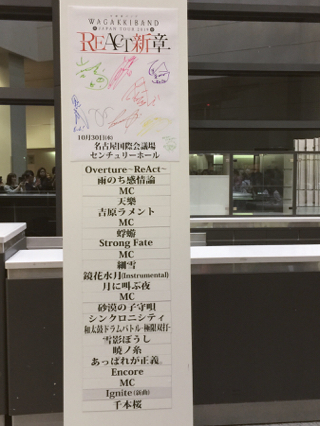 WAGAKKIBAND
JAPAN TOUR 2019
REACT新章
10月30日(水)
名古屋国際会議場
センチュリーホール
Overture~ReAct~
雨のち感情論
MC
天樂
吉原ラメント
MC
蜉蝣
Strong Fate
MC
細雪
鏡花水月(Instrumental)
月に叫ぶ夜
MC
砂漠の子守唄
シンクロニシティ
和太鼓ドラムバトル-極限双打-
雪影ぼうし
暁ノ糸
あっぱれが正義。
Encore
MC
Ignite(新曲)
千本桜